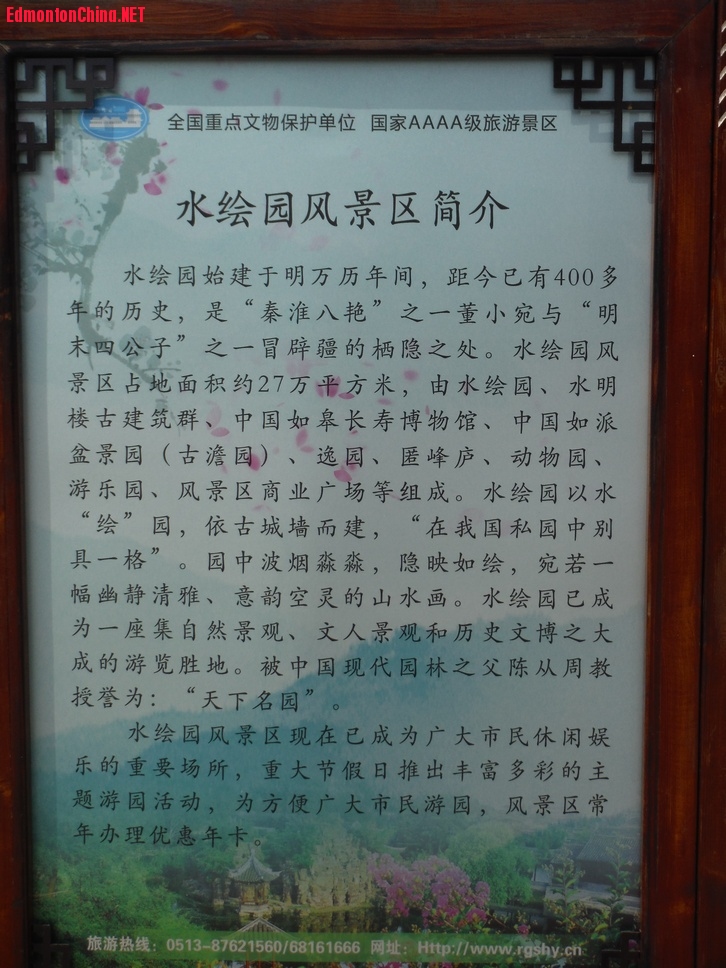 EdmontonChina.NET
全国重点文物保护单位 国家AAAA级旅游景区
水绘园风景区简介
水绘园始建于明万历年间，距今已有400多
年的历史，是“秦淮八艳”之一董小宛与“明
末四公子”之一冒辟疆的栖隐之处。水绘园风
景区占地面积约27万平方米，由水绘园、水明
楼古建筑群、中国如皋长寿博物馆、中国如派
盆景园（古澹园）、逸园、匿峰庐、动物园、
游乐园、风景区商业广场等组成。水绘园以水
“绘”园，依古城墙而建，“在我国私园中别
具一格”。园中波烟淼淼，隐映如绘，宛若一
幅幽静清雅、意韵空灵的山水画。水绘园已成
为一座集自然景观、文人景观和历史文博之大
成的游览胜地。被中国现代园林之父陈从周教
授誉为：“天下名园”。
水绘园风景区现在已成为广大市民休闲娱
乐的重要场所，重大节假日推出丰富多彩的主
题游园活动，为方便广大市民游园，风景区常
年办理优惠年卡。
旅游热线：0513-87621560/68161666 网址：Http://www.rgshy.cn